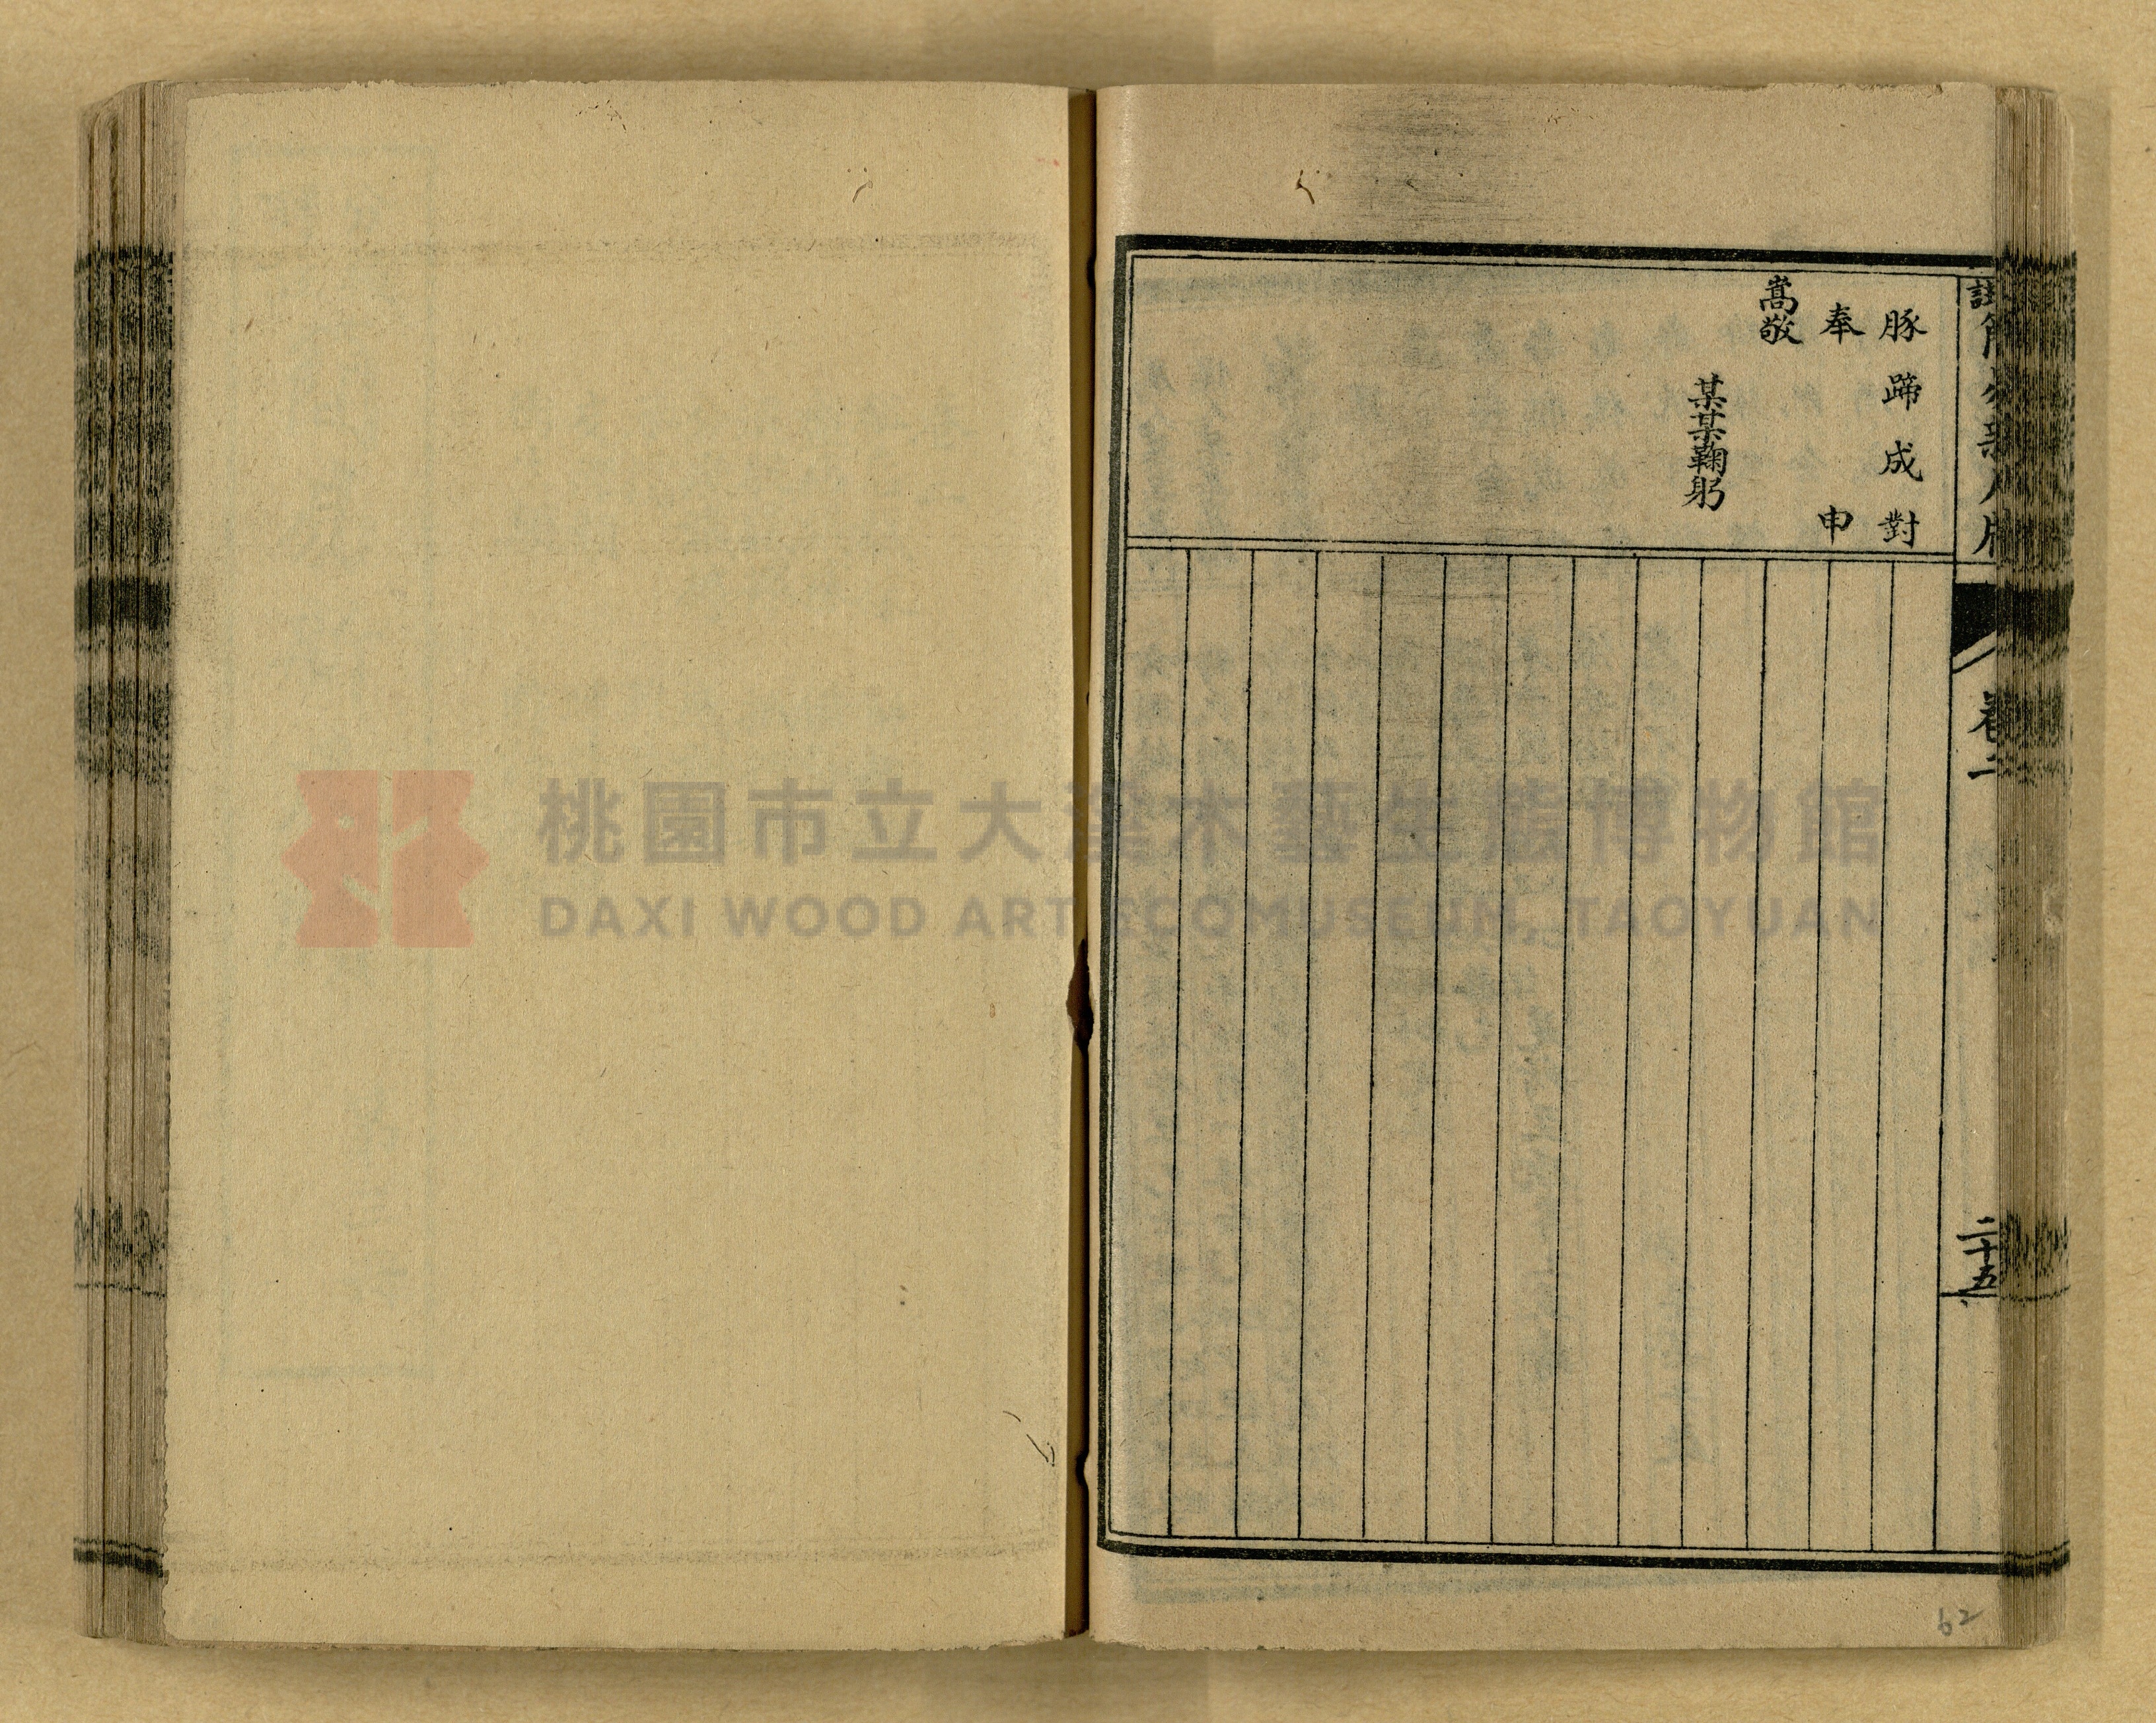 豚蹄成對
奉申
嵩敬
某某鞠躬
卷二
二十五
62
桃園市立大溪木藝生態博物館
DAXI WOOD ART ECOMUSEUM, TAOYUAN